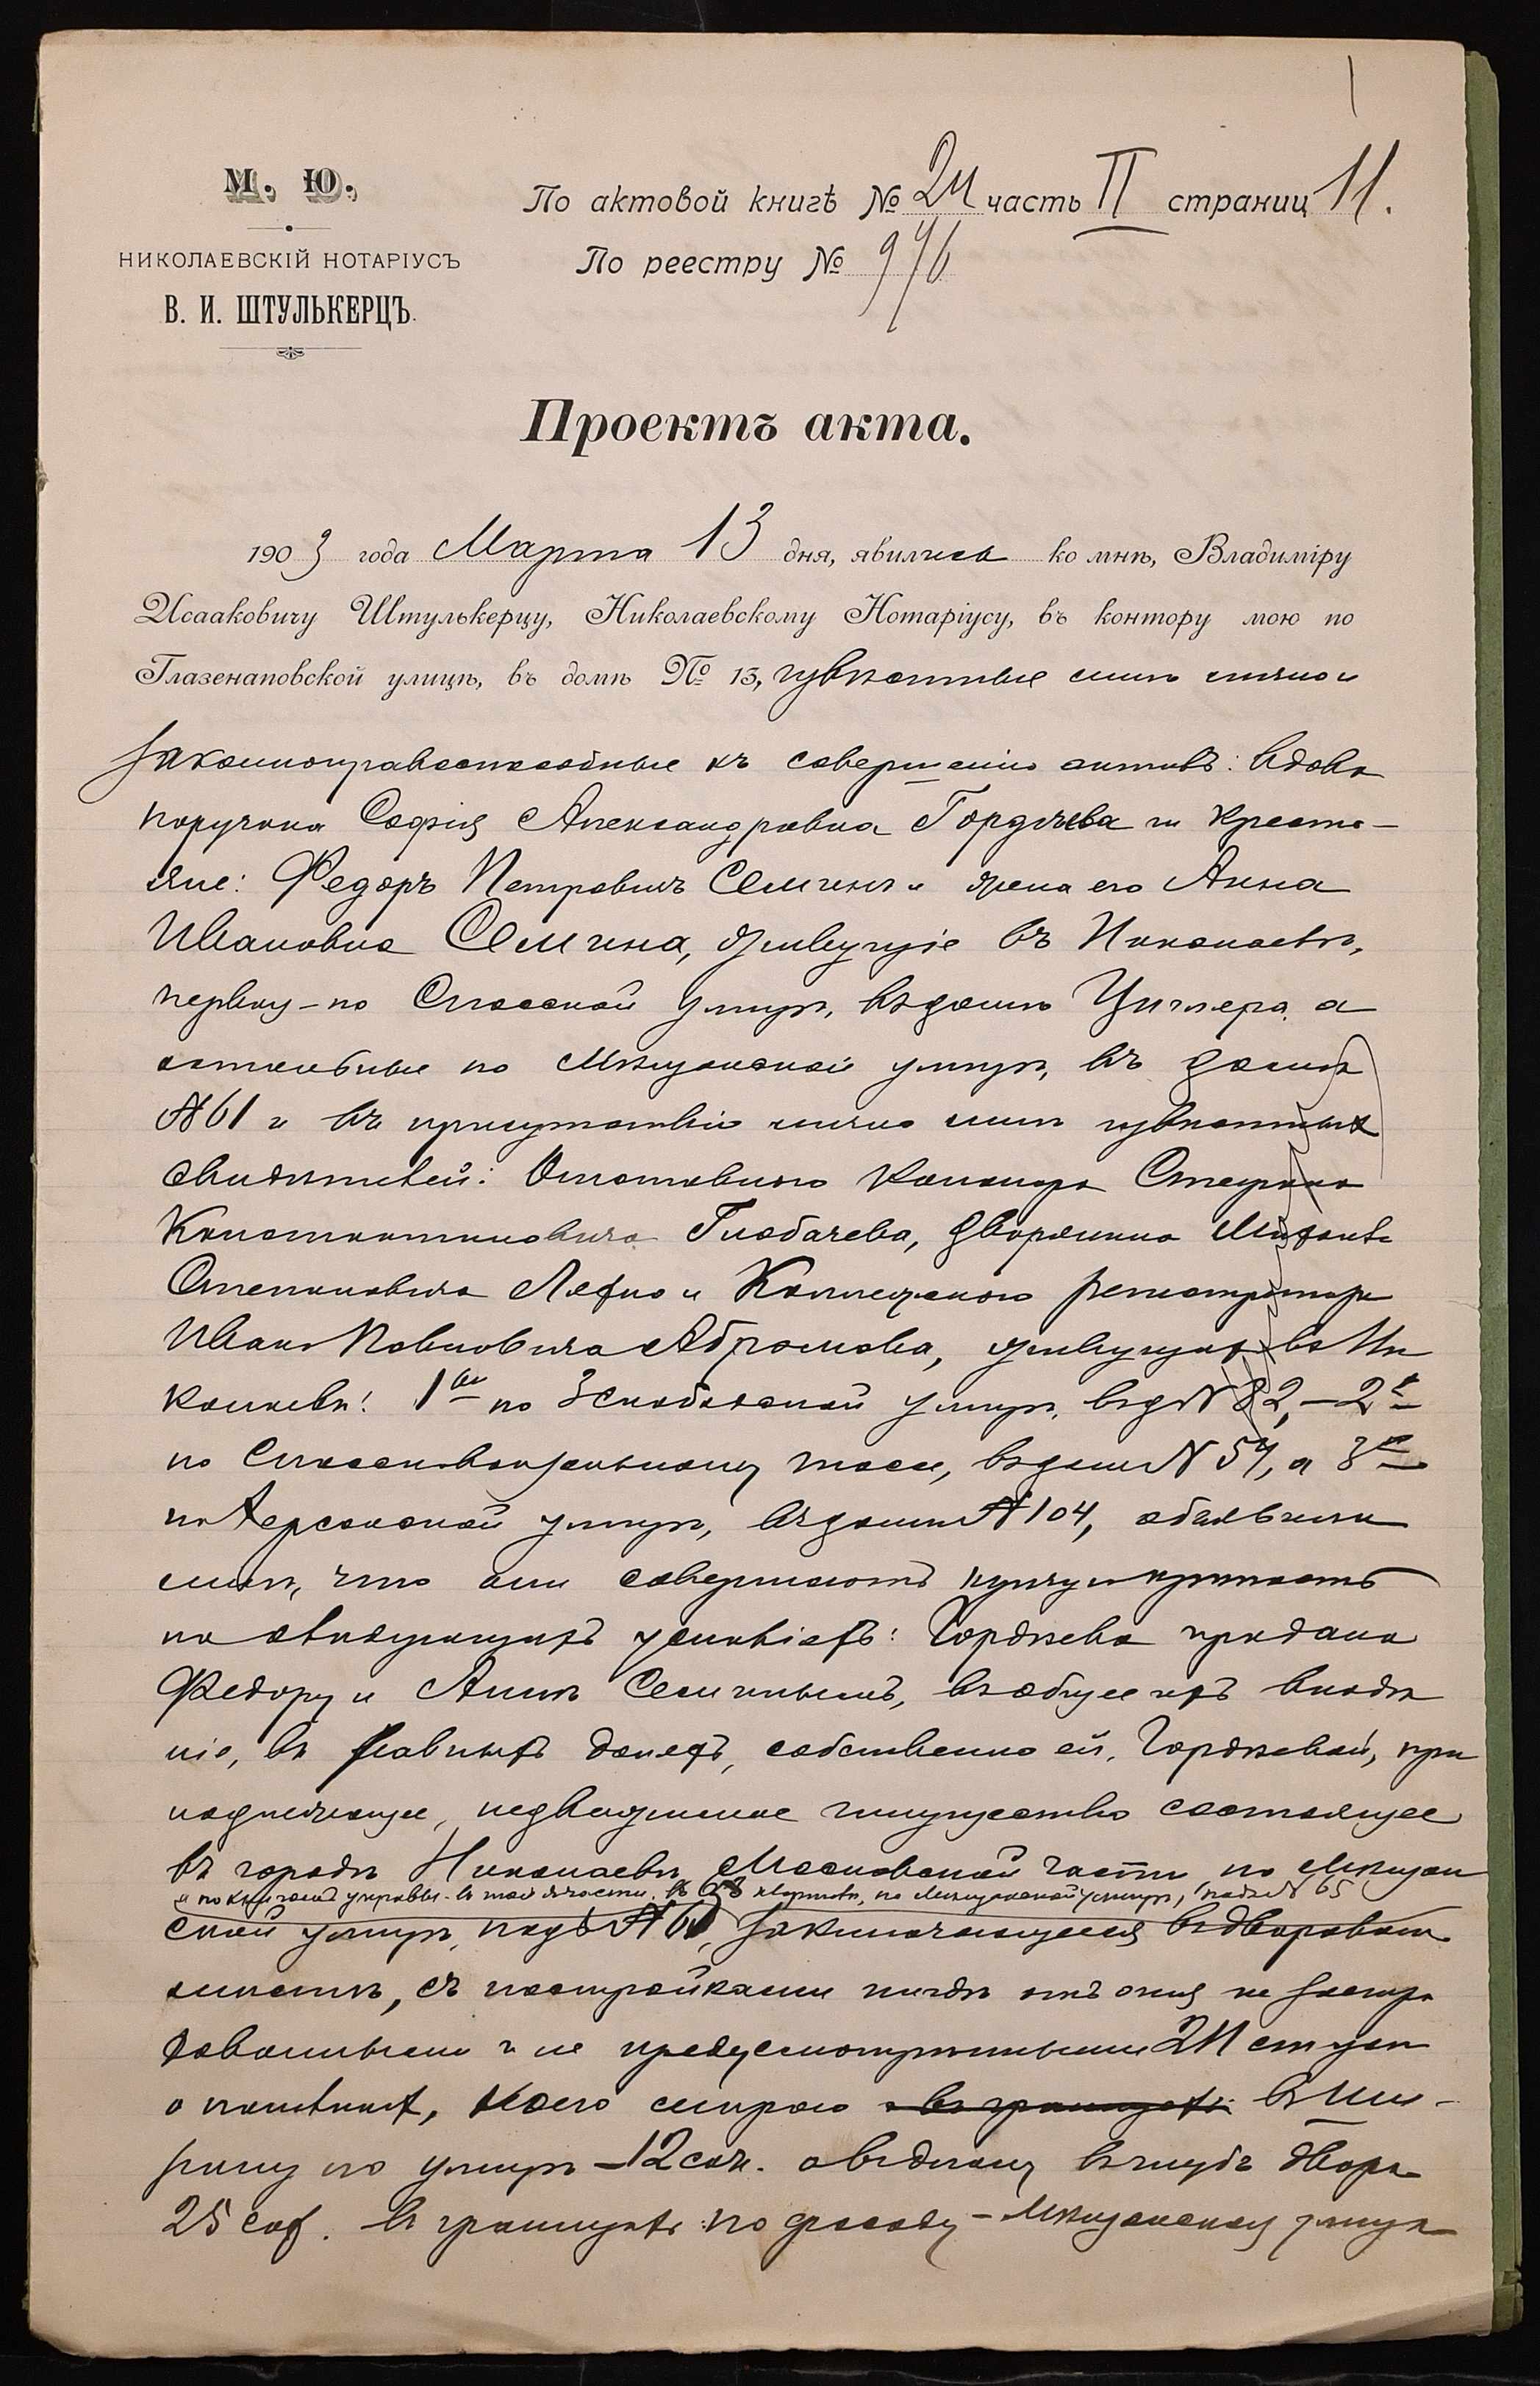 М. Ю.
НИКОЛАЕВСКІЙ НОТАРІУСЪ
В. И. ШТУЛЬКЕРЦЪ.
По актовой книгѣ № 24 часть II страниц 11.
По реестру № 976
Проектъ акта.
1903 года Марта 13 дня, явились ко мнѣ, Владиміру
Исааковичу Штулькерцу, Николаевскому Нотаріусу, въ контору мою по
Глазенаповской улицѣ, въ домѣ № 13, извѣстные мнѣ лично и
законноправоспособные къ совершенію актовъ: вдова
поручика Софія Александровна Гордѣева и кресть-
яне: Федоръ Петровичъ Семинъ и жена его Анна
Ивановна Семина, живущіе въ Николаевѣ,
первая - по Спасской улицѣ, въ домѣ а
остальные по Мѣщанской улицѣ, въ домѣ
№ 61 и въ присутствіи лично мнѣ извѣстныхъ
свидѣтелей: Отставного Степана
Константиновича Глобачева, дворянина
Степановича и Коллежскаго регистратора
Ивана Павловича Абрамова, живущихъ въ Ни
колаевѣ: 1й по улицѣ, въ д № 82, - 2й
по въ домѣ № 57, а 3й
по Херсонской улицѣ, въ домѣ № 104, объявили
мнѣ, что они совершаютъ купчую крѣпость
на слѣдующихъ условіяхъ: Гордѣева продала
Федору и Аннѣ Семинымъ, въ общее ихъ владѣ
ніе, въ равныхъ доляхъ, собственно ей, Гордѣевой, при
надлежащее, недвижимое имущество состоящее
въ городѣ Николаевѣ, Московской части, по Мѣщан
и по книгамъ управы - въ той же части, въ 68 кварталѣ, по Мѣщанской улицѣ, подъ № 65
ской улицѣ, подъ № 61, заключающееся въ дворовомъ
мѣстѣ, съ постройками нигдѣ отъ огня не застра
хованными и не предусмотрѣнными 24 ст
о мѣрою въ ши-
рину по улицѣ - 12 саж. а въ длину въ глубь двора
25 саж. въ границахъ: по фасаду - Мѣщанская улица